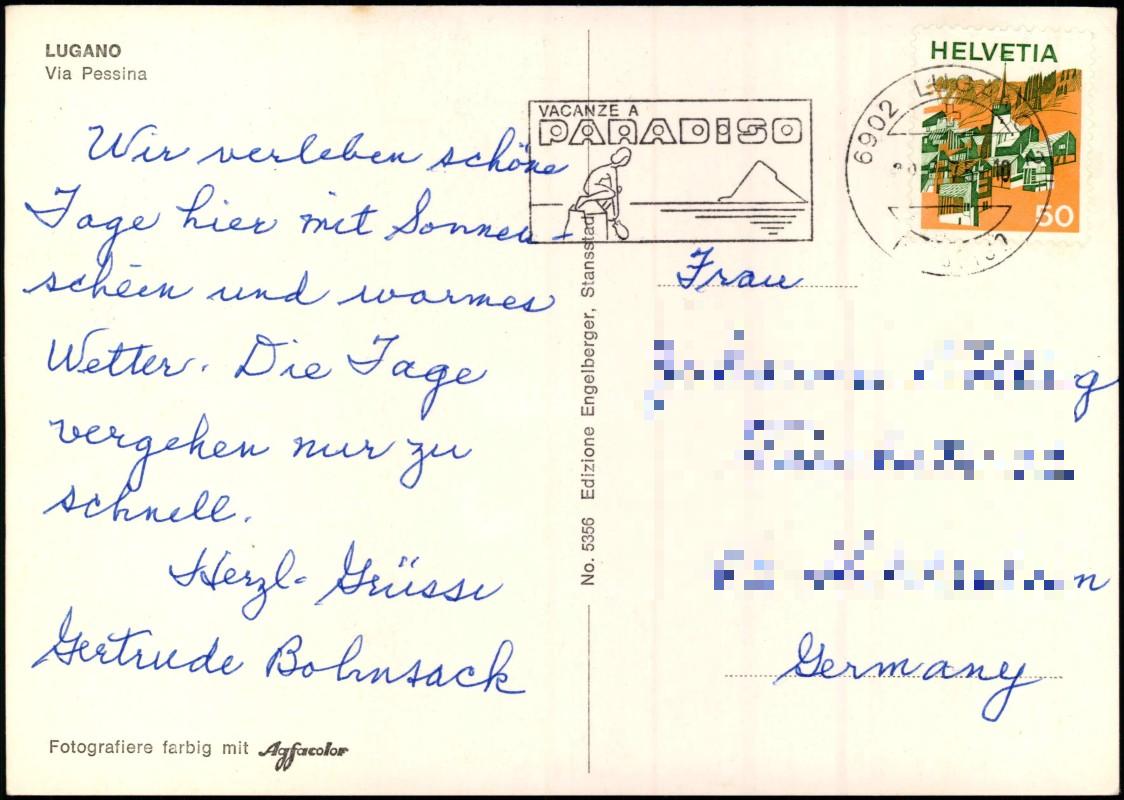 LUGANO
Via Pessina
Wir verleben schöne
Tage hier mit Sonnen-
schein und warmes
Wetter. Die Tage
vergehen nur zu
schnell.
Herzl. Grüsse
Gertrude Bohnsack
Fotografiere farbig mit Agfacolor
No. 5356 Edizione Engelberger, Stansstad
VACANZE A
PARADISO
6902
HELVETIA
50
Frau
Germany